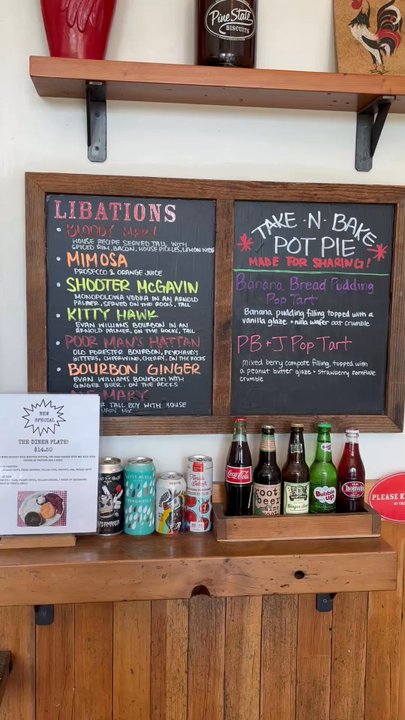 Pine State
BISCUITS
LIBATIONS
BLOODY MARY
HOUSE RECIPE SERVED TALL WITH
SPICED RIM, BACON, HOUSE PICKLES, LEMON WEDGE
MIMOSA
PROSECCO & ORANGE JUICE
SHOOTER MCGAVIN
MONOPOLOWA VODKA IN AN ARNOLD
PALMER, SERVED ON THE ROCKS, TALL
KITTY HAWK
EVAN WILLIAMS BOURBON IN AN
ARNOLD PALMER, ON THE ROCKS, TALL
POOR MAN'S HATTAN
OLD FORESTER BOURBON, PEYCHAUD'S
BITTERS, CHEERWINE, CHERRY, ON THE ROCKS
BOURBON GINGER
EVAN WILLIAMS BOURBON WITH
GINGER BEER, ON THE ROCKS
MARY
TALL BOY WITH HOUSE
MIX
TAKE·N·BAKE
POT PIE
MADE FOR SHARING!
Banana Bread Pudding
Pop Tart
Banana pudding filling topped with a
vanilla glaze + nilla wafer oat crumble
PB+J Pop Tart
mixed berry compote filling, topped with
a peanut butter glaze + strawberry cornflake
crumble
NEW
SPECIAL
THE DINER PLATE!
$14.50
Coca-Cola
root beer
Bubble up
Cheerwine
PLEASE